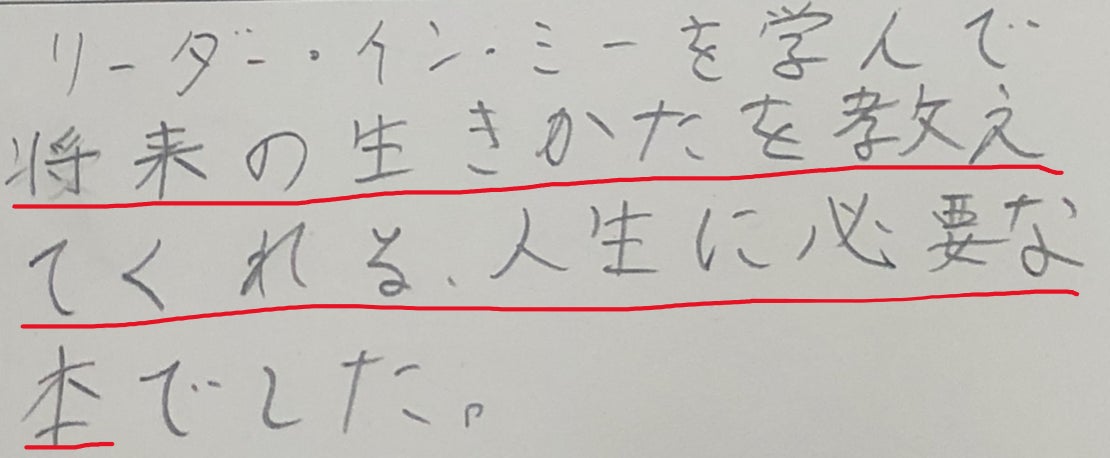 リーダー・イン・ミーを学んで
将来の生きかたを教え
てくれる、人生に必要な
本でした。